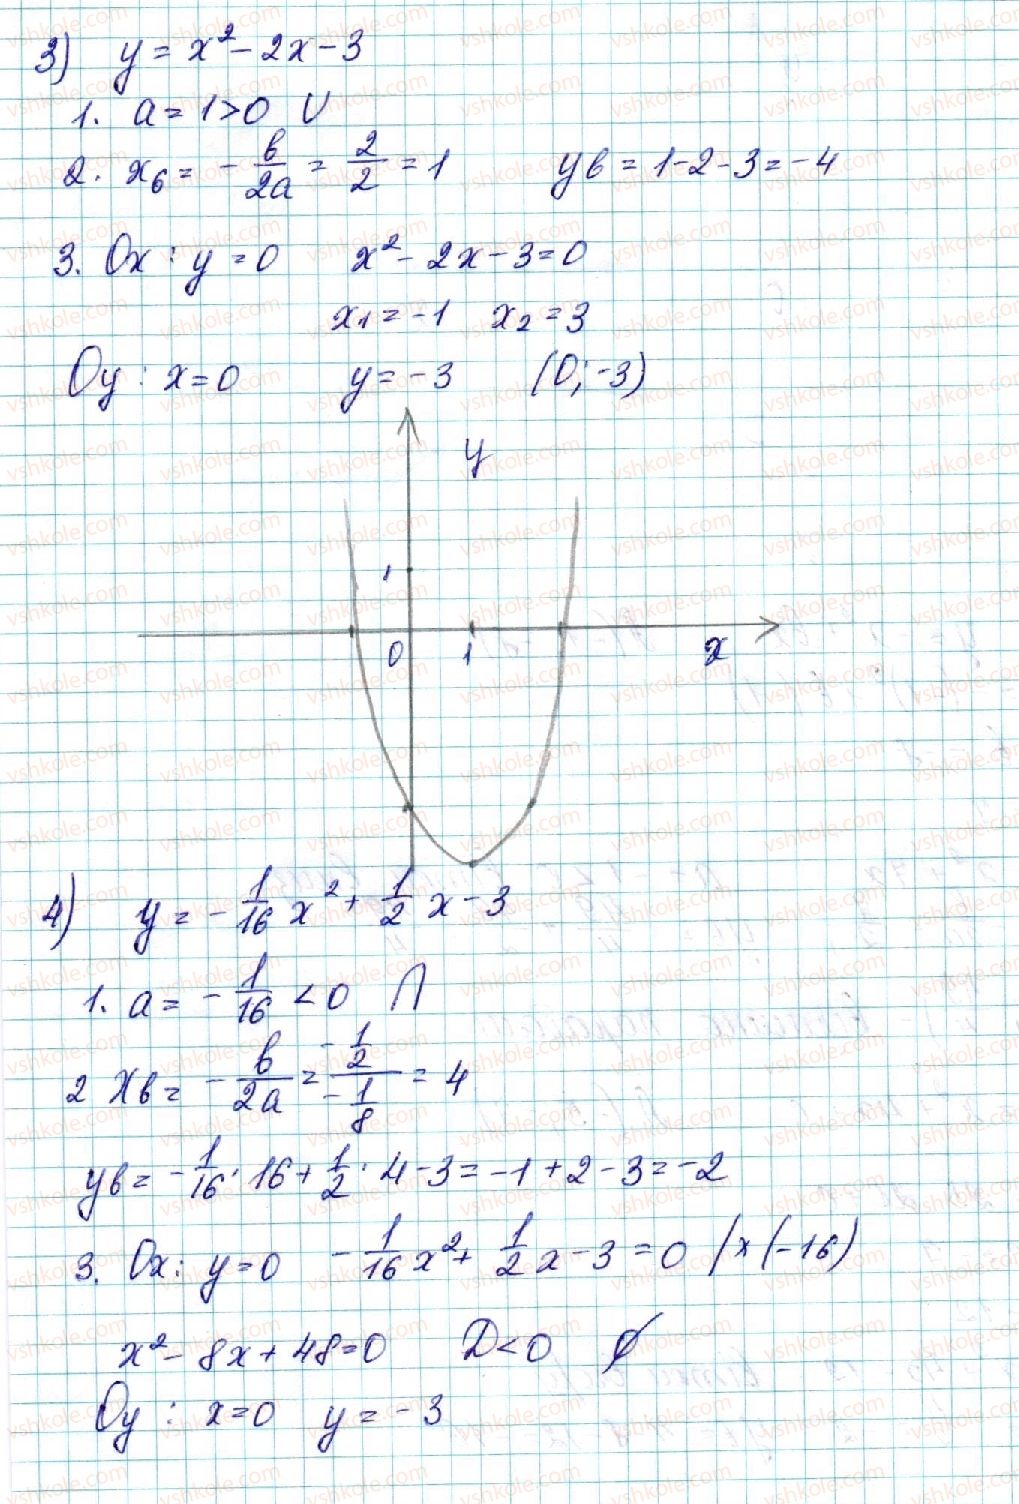 3) y = x² - 2x - 3
1. a = 1 > 0 ∪
2. xв = - в/2a = 2/2 = 1 yв = 1 - 2 - 3 = -4
3. Ox : y = 0 x² - 2x - 3 = 0
x₁ = -1 x₂ = 3
Oy : x = 0 y = -3 (0; -3)
y
1
0 1 x
4) y = - 1/16 x² + 1/2 x - 3
1. a = - 1/16 < 0 ∩
2 Xв = - в/2a = (- 1/2)/(- 1/8) = 4
yв = - 1/16 · 16 + 1/2 · 4 - 3 = -1 + 2 - 3 = -2
3. Ox : y = 0 - 1/16 x² + 1/2 x - 3 = 0 | x (-16)
x² - 8x + 48 = 0 D < 0 ∅
Oy : x = 0 y = -3